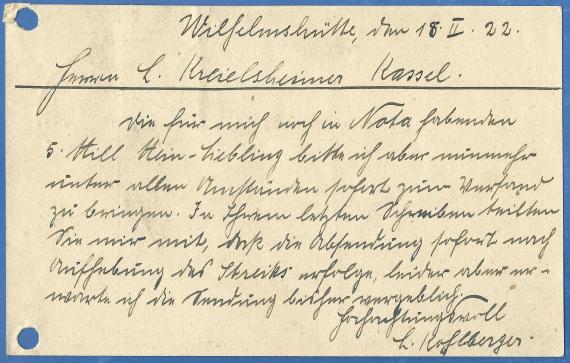 Wilhelmshütte, den 18. II. 22.
Herrn L. Kreielsheimer Kassel.
Die für mich noch in Nota habenden
5. Mill Mein-Liebling bitte ich aber nunmehr
unter allen Umständen sofort zum Versand
zu bringen. In Ihrem letzten Schreiben teilten
Sie mir mit, daß die Absendung sofort nach
Aufhebung des Streiks erfolge, leider aber er-
warte ich die Sendung bisher vergeblich.
Hochachtungsvoll
L. Kohlberger.